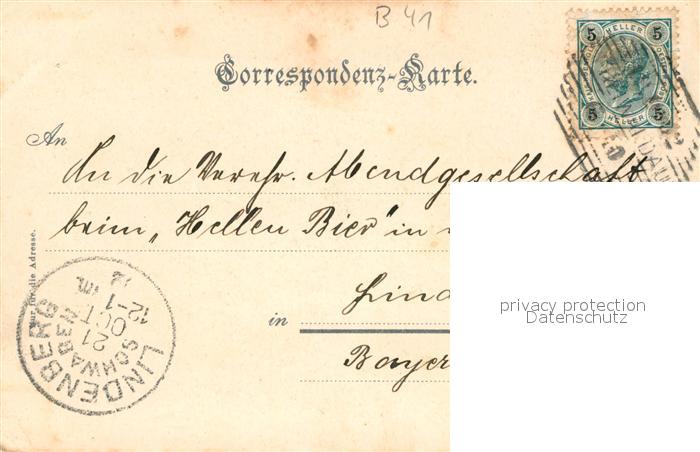 B 41
Correspondenz-Karte.
5 HELLER 5
5 HELLER 5
An
An die Verehr. Abendgesellschaft
beim „Hellen Bier" in
Lind
in
Bayer
Nur für die Adresse.
LINDENBERG
SCHWABEN
21
OCT
12-1
privacy protection
Datenschutz